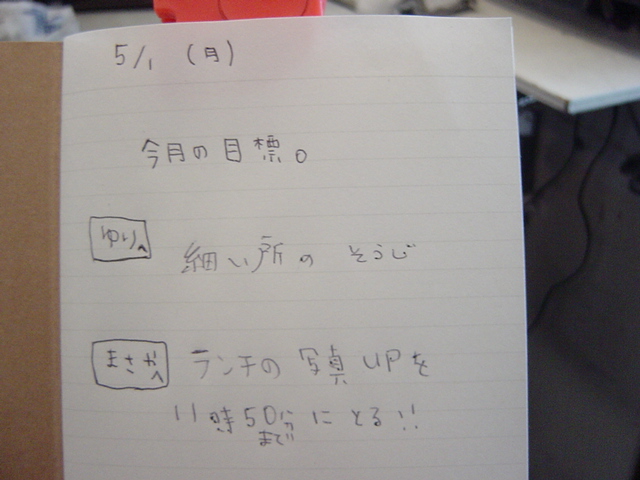 5/1 (月)
今月の目標。
ゆりへ 細い所の そうじ
まさかへ ランチの 写真 UPを
11時50分 に とる!!
まで!!